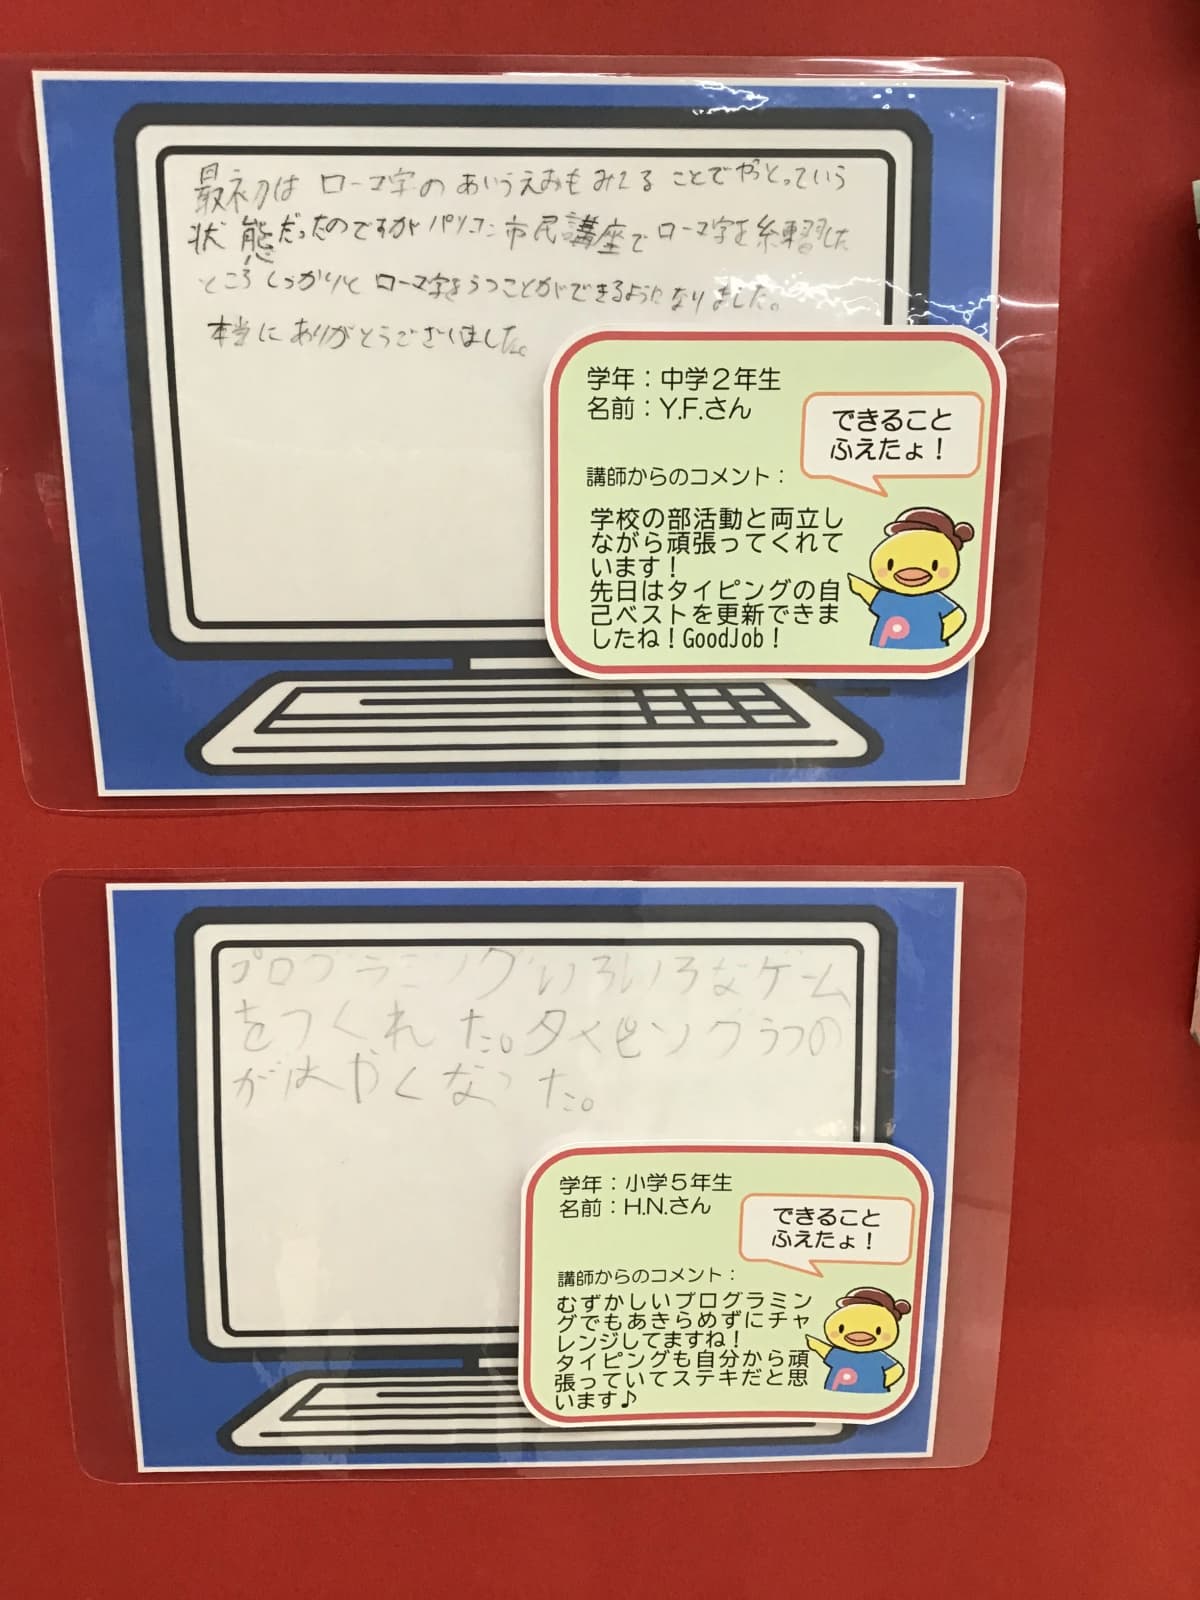 最初はローマ字のあいうえおもみてることでやっとっていう
状態だったのですがパソコン市民講座でローマ字を練習した
ところしっかりとローマ字をうつことができるようになりました。
本当にありがとうございました。
学年：中学２年生
名前：Y.F.さん
できること
ふえたょ！
講師からのコメント：
学校の部活動と両立し
ながら頑張ってくれて
います！
先日はタイピングの自
己ベストを更新できま
したね！GoodJob！
P
プログラミングいろいろなゲーム
をつくれた。タイピングうつの
がはやくなった。
学年：小学５年生
名前：H.N.さん
できること
ふえたょ！
講師からのコメント：
むずかしいプログラミン
グでもあきらめずにチャ
レンジしてますね！
タイピングも自分から頑
張っていてステキだと思
います♪
P